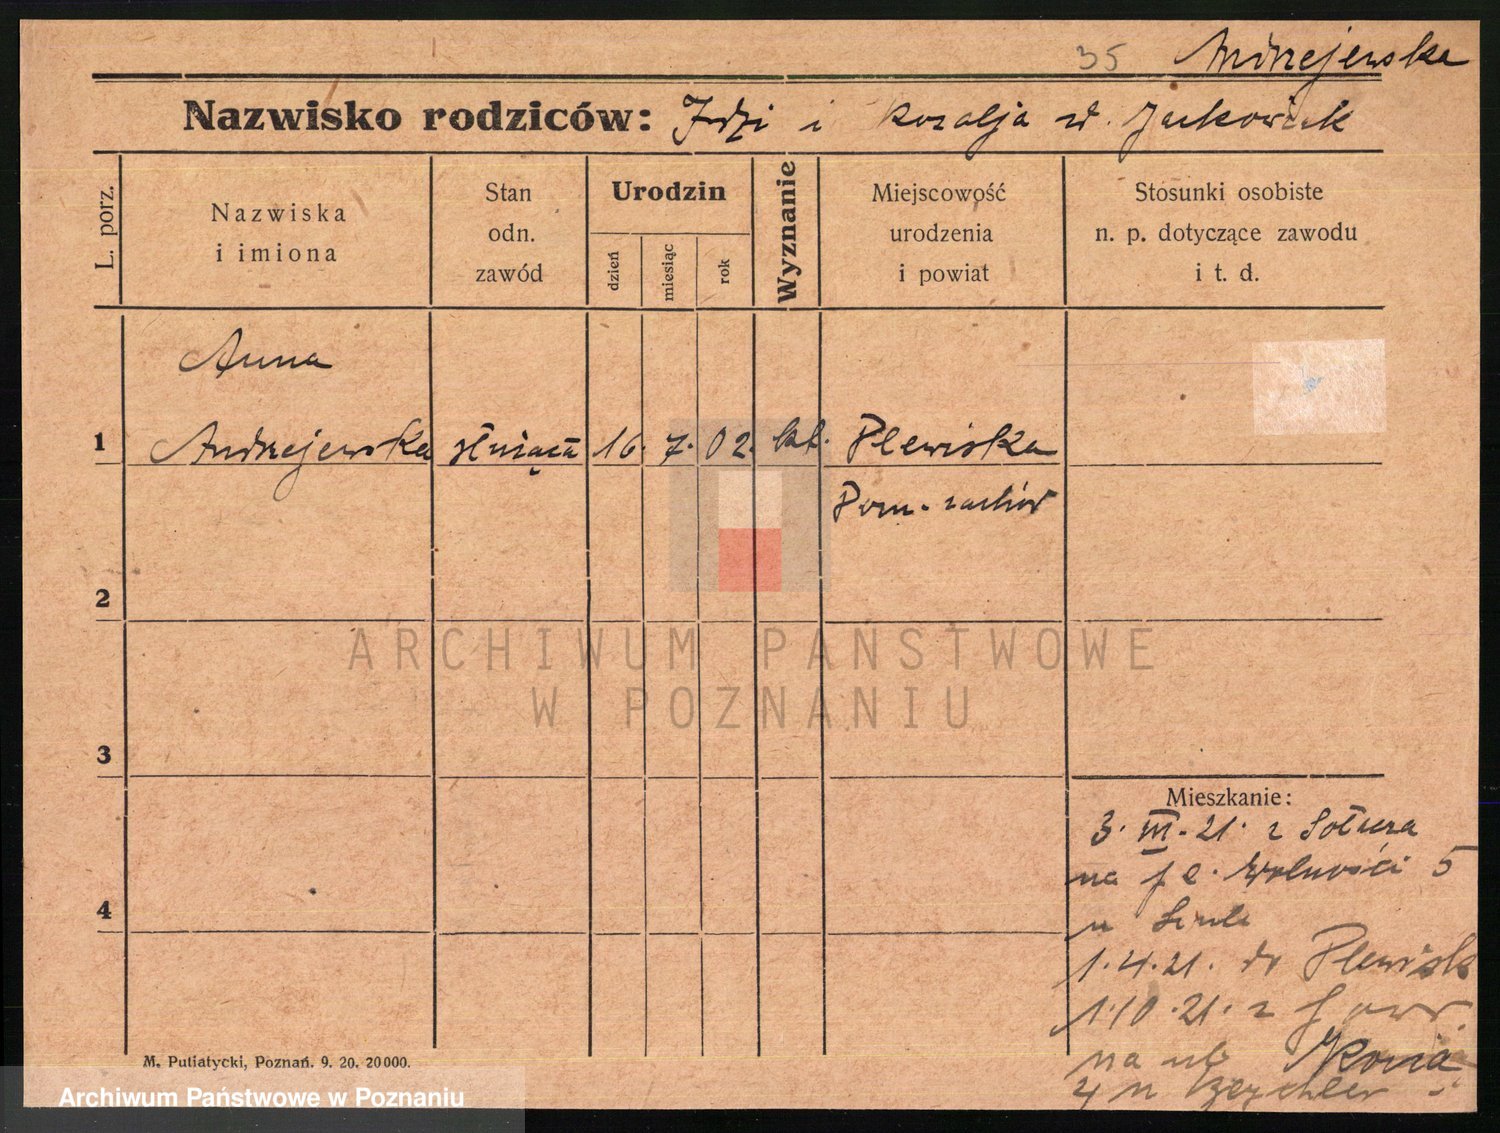 35 Andrzejewska
Nazwisko rodziców: Idzi i Rozalja zd. Jackowiak
L. porz.
Nazwiska
i imiona
Stan
odn.
zawód
Urodzin
dzień
miesiąc
rok
Wyznanie
Miejscowość
urodzenia
i powiat
Stosunki osobiste
n. p. dotyczące zawodu
i t. d.
Anna
1 Andrzejewska służąca 16. 7. 02. kt. Plewiska
Pozn. zachód
2
3
4
Mieszkanie:
3. III. 21. z Sołacza
na pl. Wolności 5
u
1.4.21. do Plewisk
1.10.21. z
na ul.
4 u
M. Putiatycki, Poznań. 9. 20. 20000.
ARCHIWUM PAŃSTWOWE
W POZNANIU
Archiwum Państwowe w Poznaniu